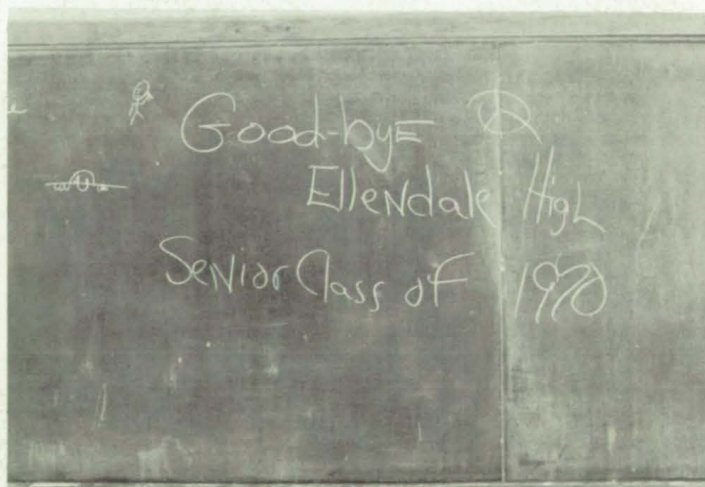 Good-byE
EllENdalE High
SeNior Class of 1970